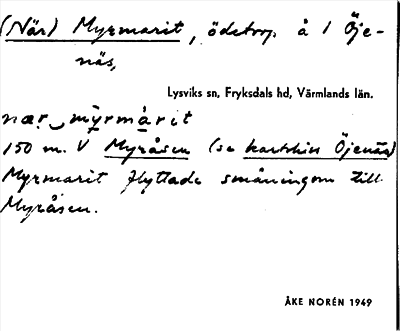 (När) Myrmarit, ödetorp å 1 Öje-
näs,
Lysviks sn, Fryksdals hd, Värmlands län.
nær myrmárit
150 m. V Myråsen (se kartskiss Öjenäs)
Myrmarit flyttade småningom till
Myråsen.
ÅKE NORÉN 1949